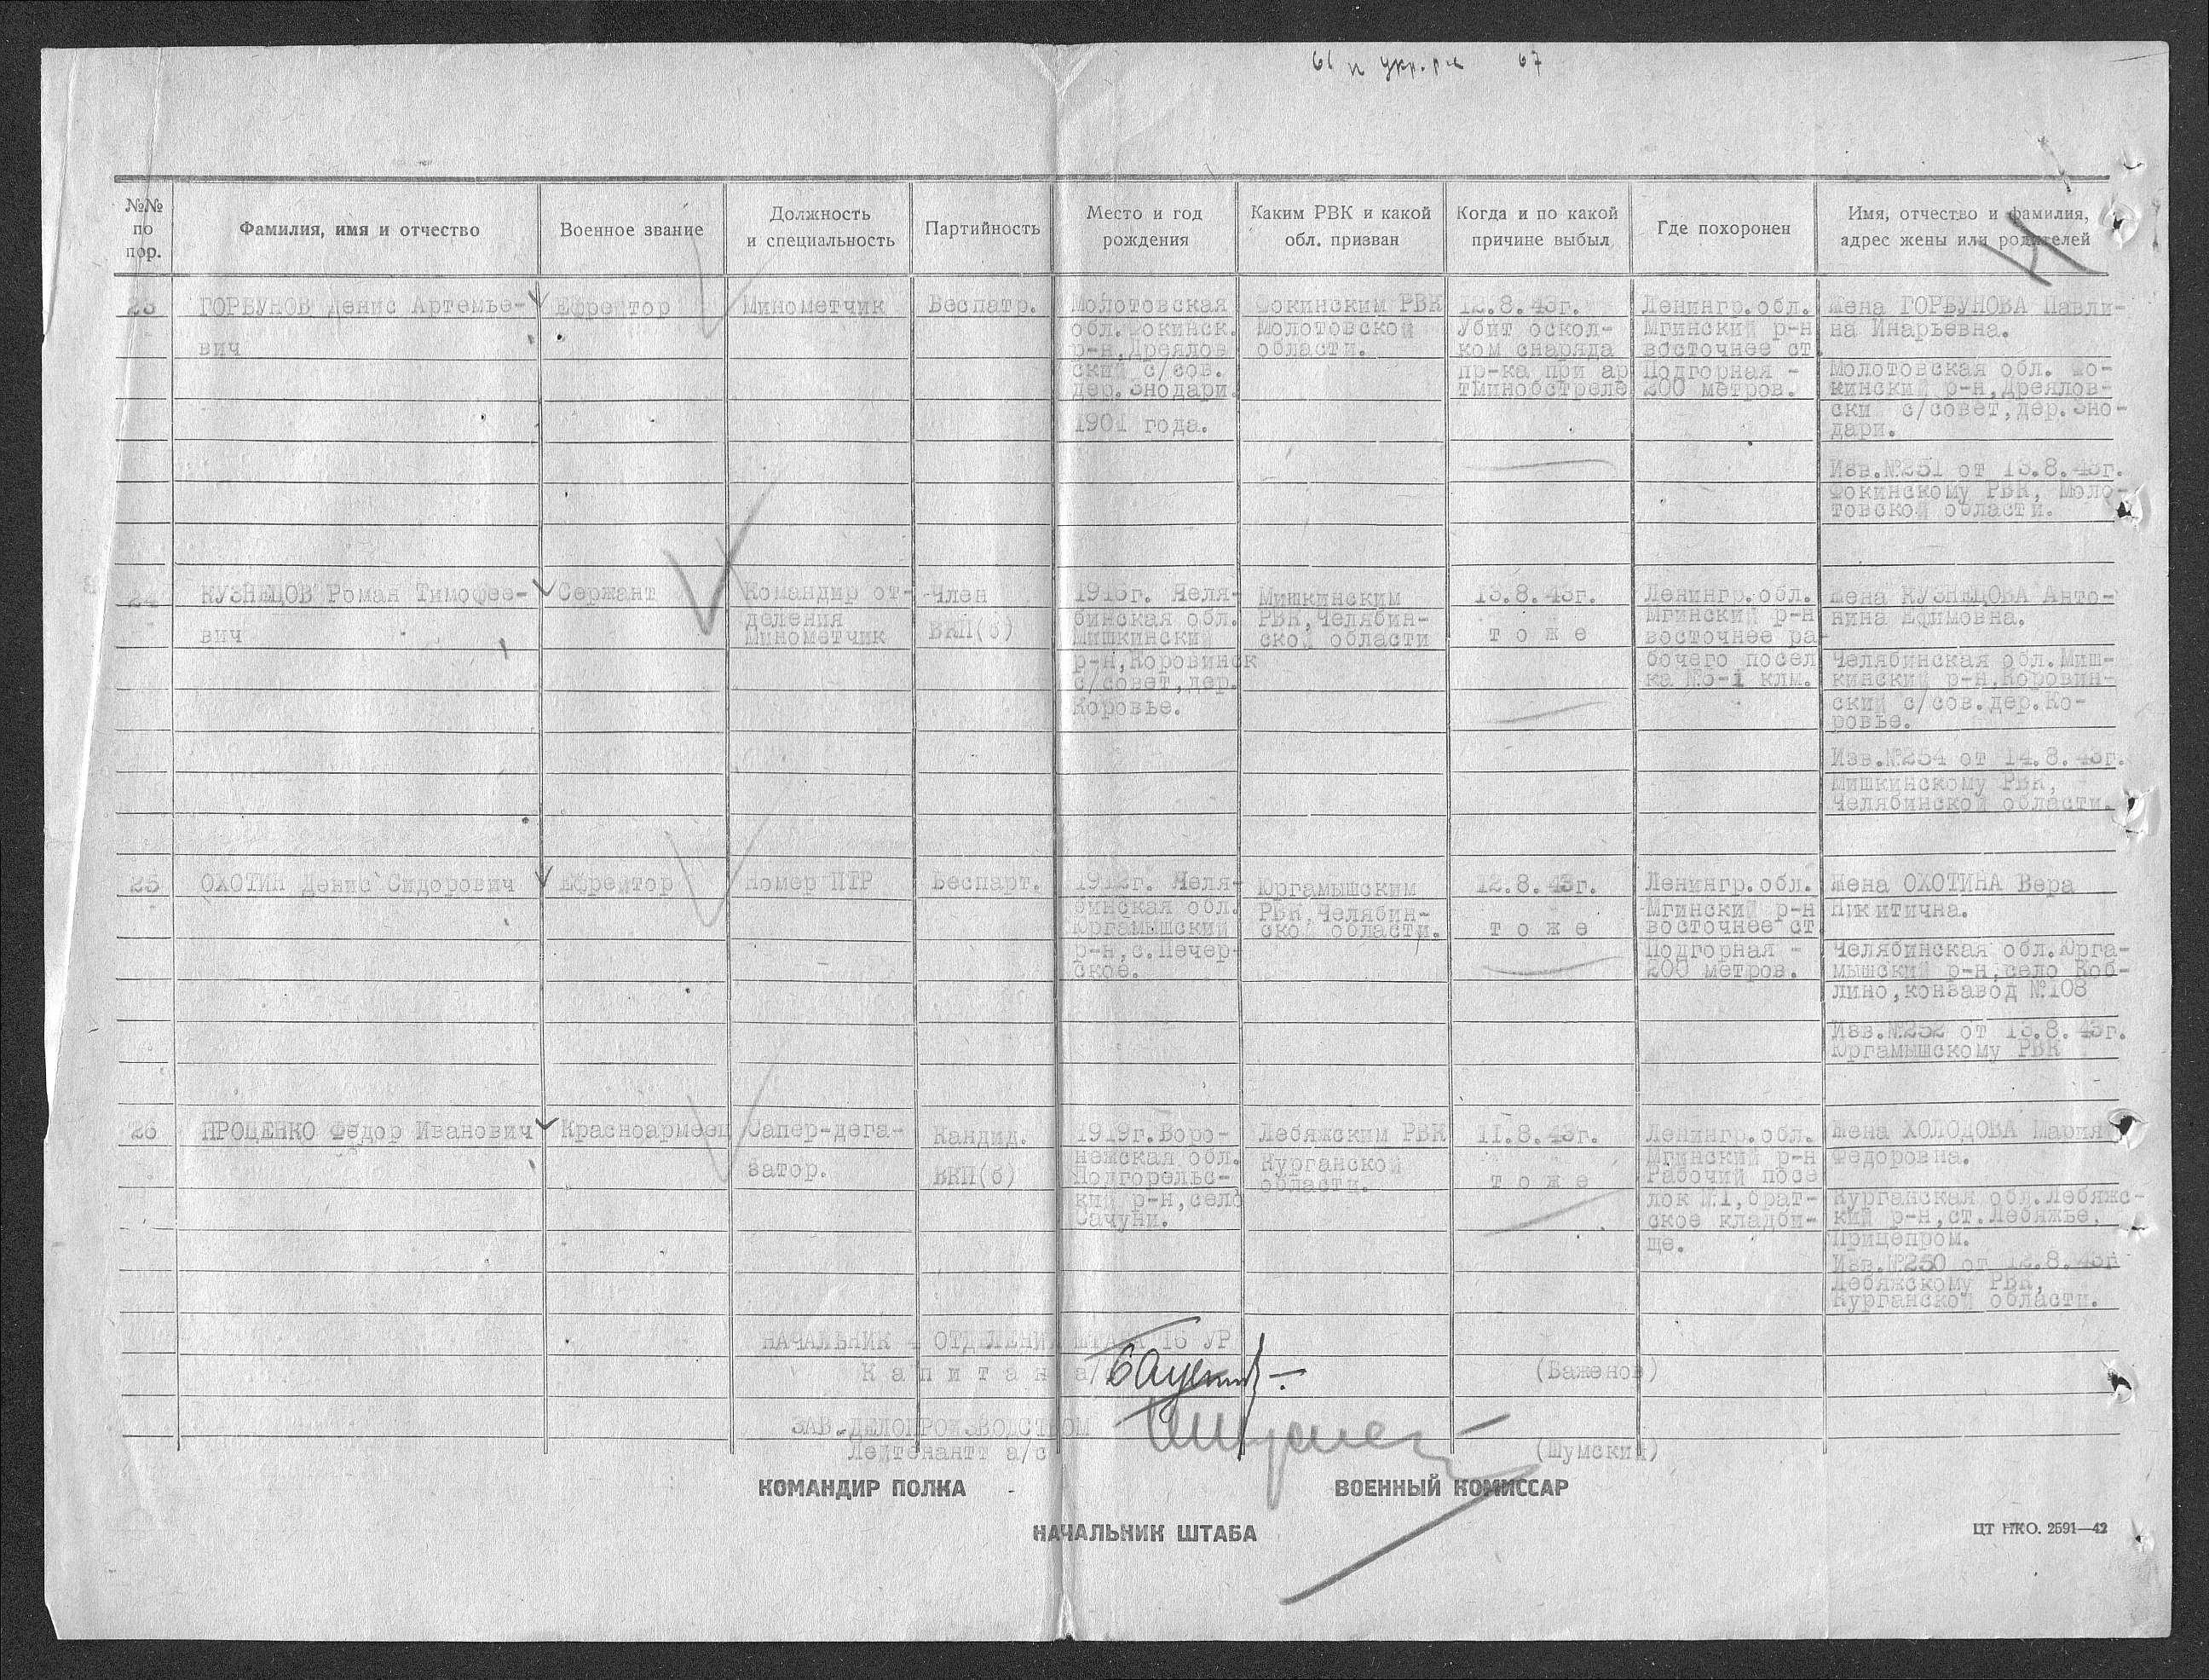 67
№№ по пор.
Фамилия, имя и отчество
Военное звание
Должность и специальность
Партийность
Место и год рождения
Каким РВК и какой обл. призван
Когда и по какой причине выбыл
Где похоронен
Имя, отчество и фамилия, адрес жены или родителей
23
ГОРБУНОВ Денис Артемье-
вич
Ефрейтор
Минометчик
Беспатр.
Молотовская
обл. Фокинск.
р-н, Дреялов
ский с/сов.
дер. Знодари.
1901 года.
Фокинским РВК
Молотовской
области.
12.8.43г.
Убит оскол-
ком снаряда
пр-ка при ар
тминобстреле
Ленингр.обл.
Мгинский р-н
восточнее ст.
Подгорная -
200 метров.
Жена ГОРБУНОВА Павли-
на Инарьевна.
Молотовская обл. Фо-
кинский р-н, Дреялов-
ский с/совет, дер. Зно-
дари.
Изв.№251 от 13.8.43г.
Фокинскому РВК, Моло-
товской области.
24
КУЗНЕЦОВ Роман Тимофее-
вич
Сержант
Командир от-
деления
Минометчик
Член
ВКП(б)
1915г. Челя-
бинская обл.
Мишкинский
р-н, Коровинск
с/совет, дер.
Коровье.
Мишкинским
РВК, Челябин-
ской области
13.8.43г.
т о ж е
Ленингр.обл.
Мгинский р-н
восточнее ра-
бочего посел
ка №5-1 клм.
Жена КУЗНЕЦОВА Анто-
нина Ефимовна.
Челябинская обл. Миш-
кинский р-н. Коровин-
ский с/сов. дер. Ко-
ровье.
Изв.№254 от 14.8.43г.
Мишкинскому РВК,
Челябинской области.
25
ОХОТИН Денис Сидорович
Ефрейтор
Номер ПТР
Беспарт.
1912г. Челя-
бинская обл.
Юргамышский
р-н, с. Печер-
ское.
Юргамышским
РВК, Челябин-
ской области.
12.8.43г.
т о ж е
Ленингр.обл.
Мгинский р-н
восточнее ст
Подгорная -
200 метров.
Жена ОХОТИНА Вера
Никитична.
Челябинская обл. Юрга-
мышский р-н, село Коб-
лино, конзавод №108
Изв.№252 от 13.8.43г.
Юргамышскому РВК
26
ПРОЦЕНКО Федор Иванович
Красноармеец
Сапер-дега-
затор.
Кандид.
ВКП(б)
1919г. Воро-
нежская обл.
Подгорельс-
кий р-н, село
Сачуни.
Лебяжским РВК
Курганской
области.
11.8.43г.
т о ж е
Ленингр.обл.
Мгинский р-н
Рабочий посе
лок №1, брат-
ское кладби-
ще.
Жена ХОЛОДОВА Мария
Федоровна.
Курганская обл. Лебяжс-
кий р-н, ст. Лебяжье,
Прицепром.
Изв.№250 от 12.8.43г
Лебяжскому РВК,
Курганской области.
НАЧАЛЬНИК ОТДЕЛЕНИЯ ШТАБА 16 УР
К а п и т а н а/с
(Баженов)
ЗАВ. ДЕЛОПРОИЗВОДСТВОМ
Лейтенантт а/с
(Шумский)
КОМАНДИР ПОЛКА
ВОЕННЫЙ КОМИССАР
НАЧАЛЬНИК ШТАБА
ЦТ НКО. 2591—42